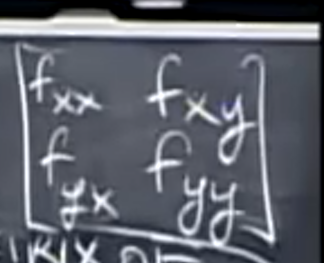 [f_xx f_xy
f_yx f_yy]